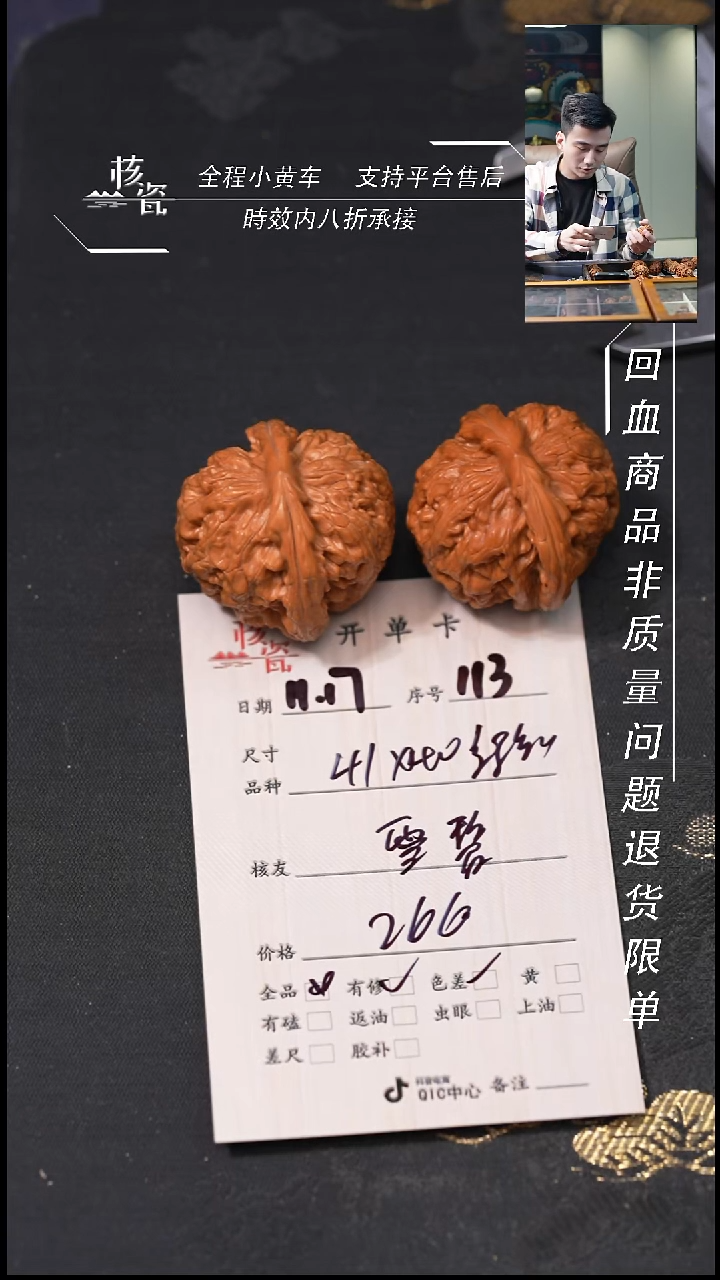 核瓷
全程小黄车 支持平台售后
時效内八折承接
回血商品非质量问题退货限单
核瓷 开单卡
日期 11.17 序号 113
尺寸
品种 41x40
核友
价格 266
全品 有修 色差 黄
有磕 返油 虫眼 上油
差尺 胶补
抖音电商
QIC中心 备注